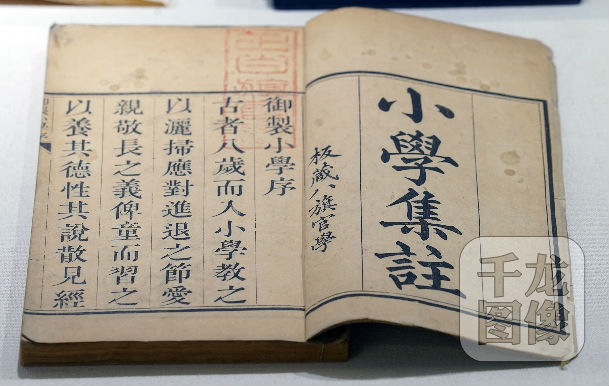 小學集註
板藏八旗官學
御製小學序
古者八歲而入小學教之
以灑掃應對進退之節愛
親敬長之義俾童而習之
以養其德性其說散見經
千龙
图像